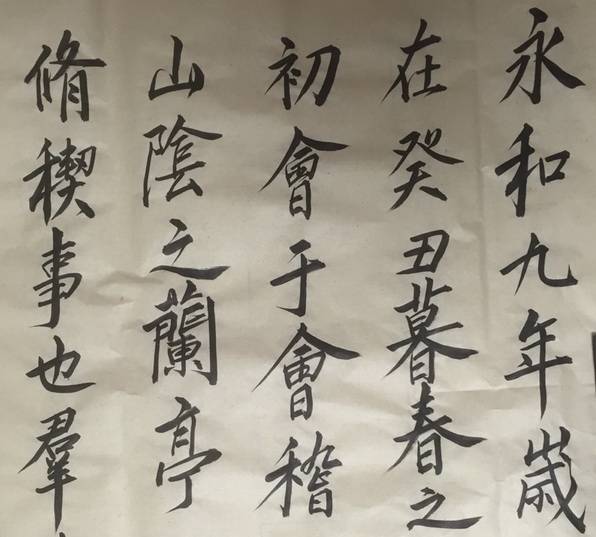 永和九年歲
在癸丑暮春之
初會于會稽
山陰之蘭亭
脩稧事也羣